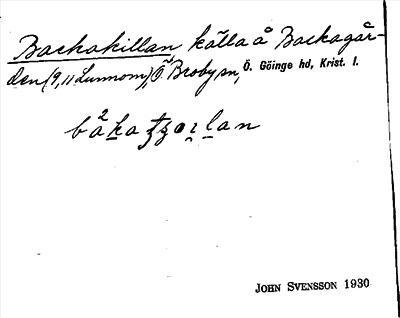 Backakillan, källa å Backagår-
den (9,11 Lunnom), Ö. Broby sn, Ö. Göinge hd, Krist. l.
JOHN SVENSSON 1930